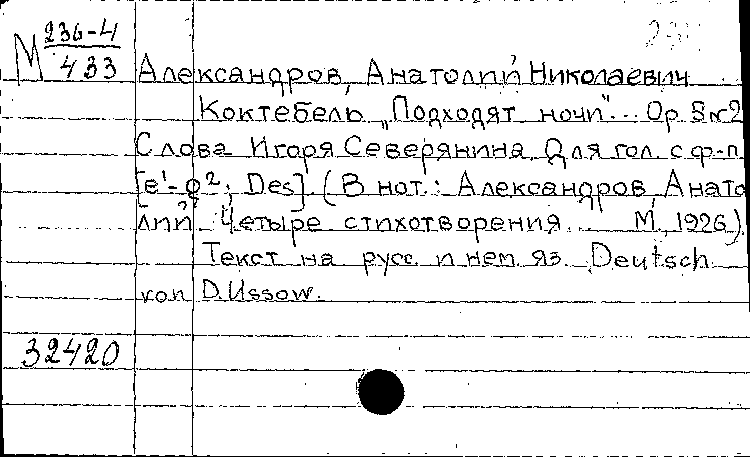 М 236-4
433
Александров, Анатолий Николаевич
Коктебель „Подходят ночи“... Ор. 8 №2
Слова Игоря Северянина. Для гол. с ф-п
[e¹- g²; Des]. (В нот.: Александров, Анато
лий. Четыре стихотворения... М., 1926).
Текст на русс. и нем. яз. Deutsch
von D. Ussow.
32420